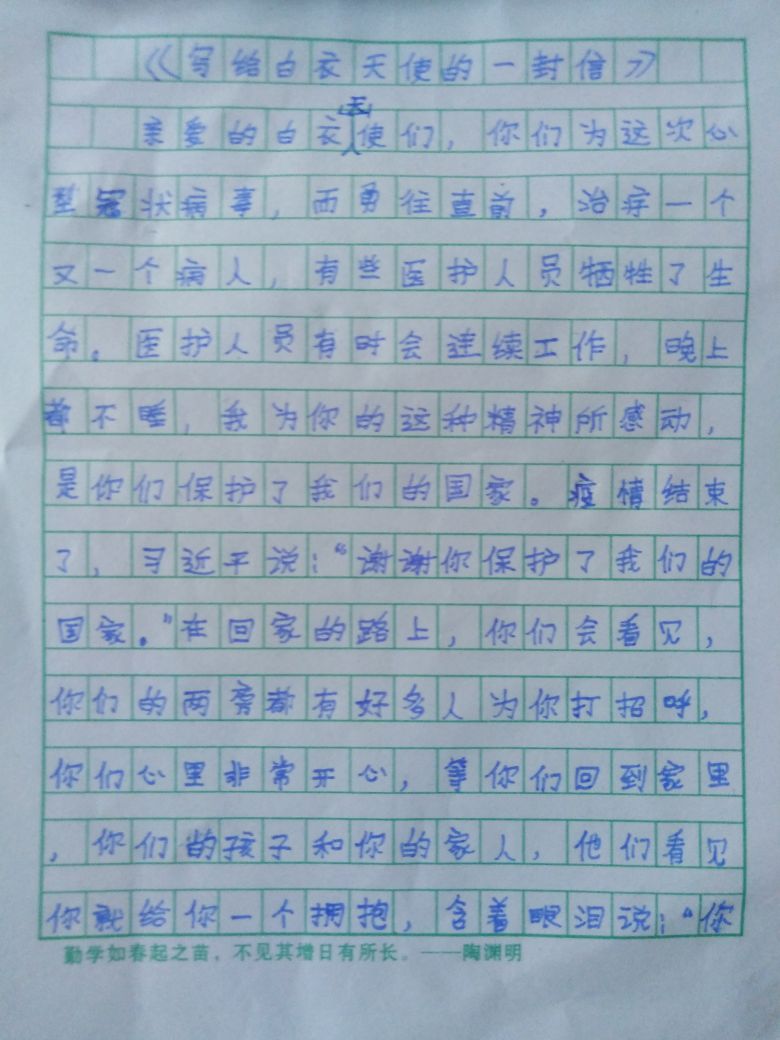 《写给白衣天使的一封信》
亲爱的白衣天使们，你们为这次心
型冠状病毒，而勇往直前，治疗一个
又一个病人，有些医护人员牺牲了生
命。医护人员有时会连续工作，晚上
都不睡，我为你的这种精神所感动，
是你们保护了我们的国家。疫情结束
了，习近平说：“谢谢你保护了我们的
国家。”在回家的路上，你们会看见，
你们的两旁都有好多人为你打招呼，
你们心里非常开心，等你们回到家里
，你们的孩子和你的家人，他们看见
你就给你一个拥抱，含着眼泪说：“你
勤学如春起之苗，不见其增日有所长。——陶渊明